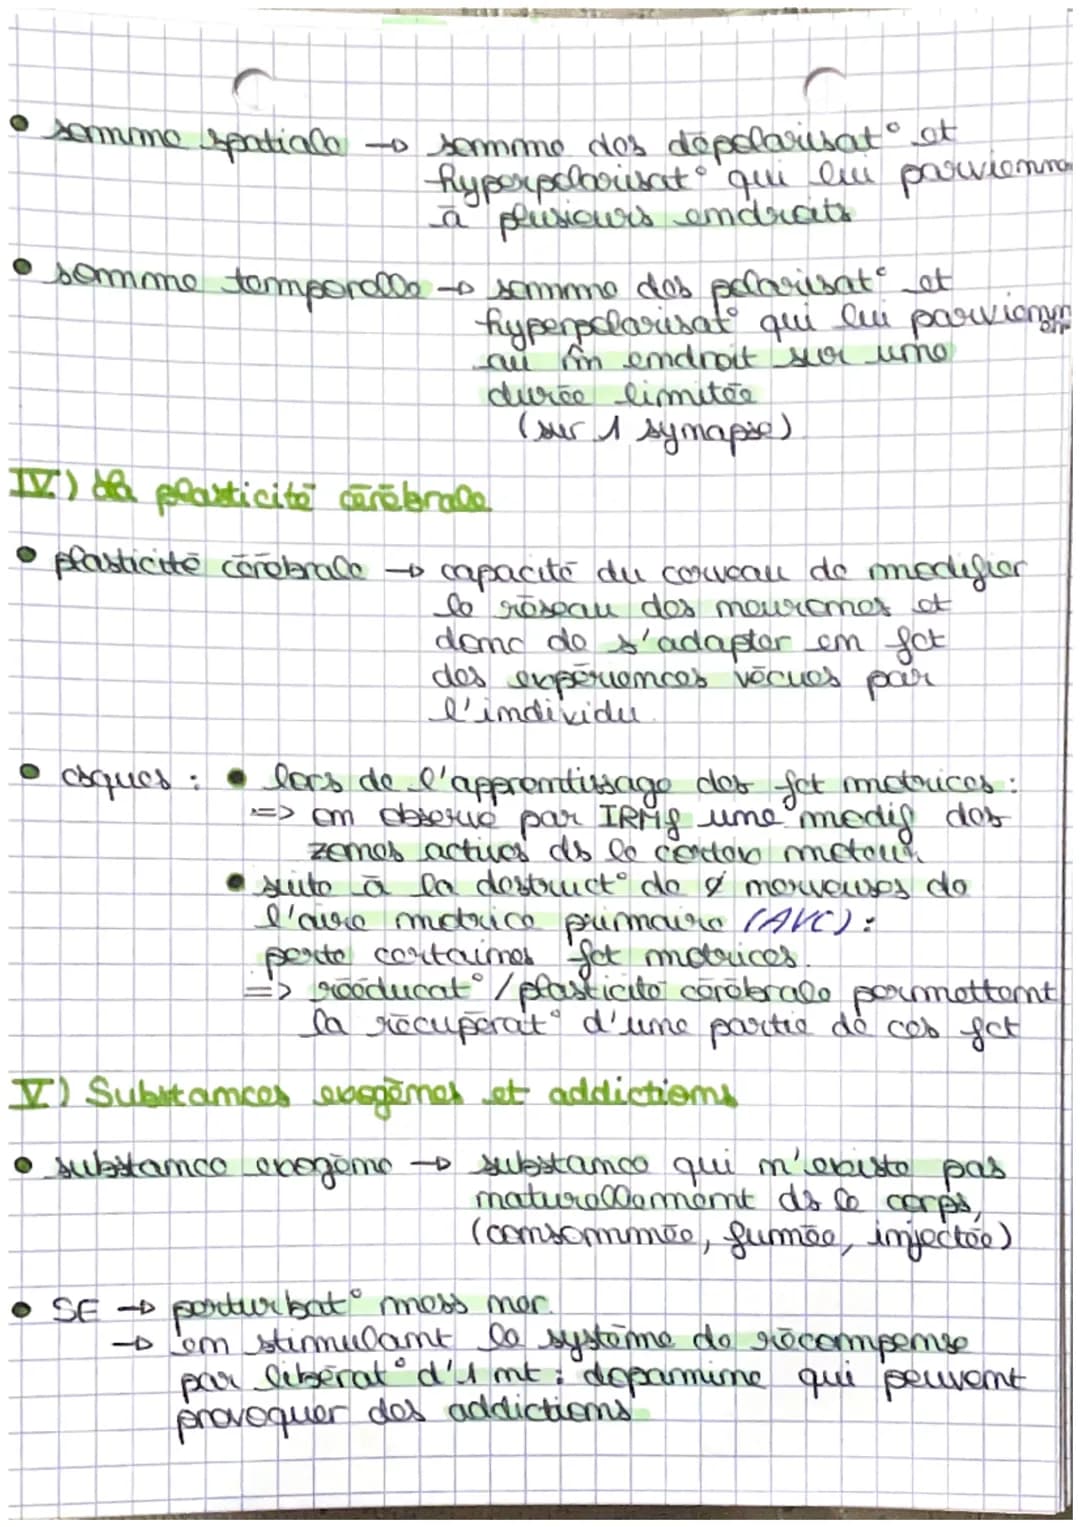 • somme spatiale → somme des dépolarisat° et
hyperpolarisat° qui lui parvienne
à plusieurs endroits
• somme temporelle → somme des polarisat° et
hyperpolarisat° qui lui parviennent
au m̂ endroit sur une
durée limitée
(sur 1 synapse)
IV.) La plasticité cérébrale
• plasticité cérébrale → capacité du cerveau de modifier
le réseau des neurones et
donc de s'adapter en fct
des expériences vécues par
l'individu.
• csques : • lors de l'apprentissage des fct motrices :
=> on observe par IRMf une modif des
zones actives ds le cortex moteur
• suite à la destruct° de ¢ nerveuses de
l'aire motrice primaire (AVC) :
perte certaines fct motrices.
=> rééducat° / plasticité cérébrale permettent
la récupérat° d'une partie de ces fct
V) Substances exogènes et addictions
• substance exogène → substance qui n'existe pas
naturellement ds le corps,
(consommée, fumée, injectée)
• SE → perturbat° mess ner.
→ en stimulant le système de récompense
par libérat° d'1 nt : dopamine qui peuvent
provoquer des addictions